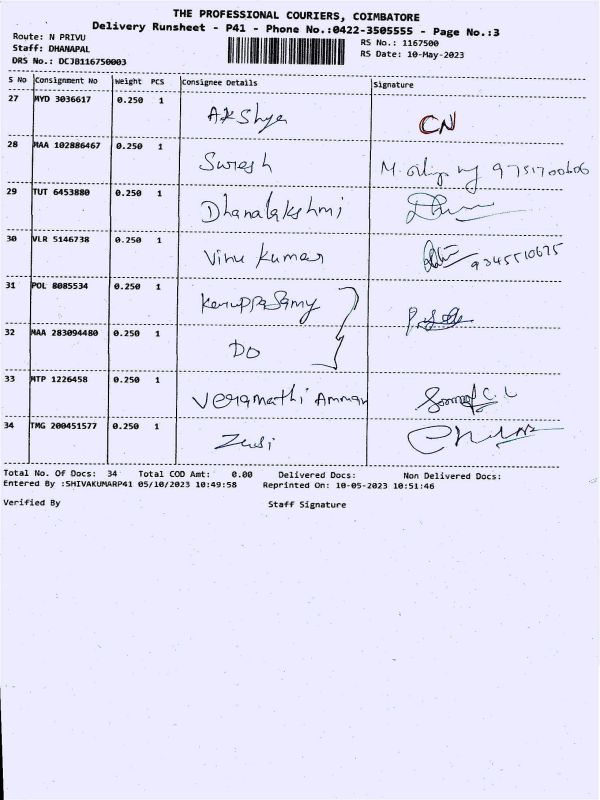 THE PROFESSIONAL COURIERS, COIMBATORE
Delivery Runsheet - P41 - Phone No.:0422-3505555 - Page No.:3
Route: N PRIVU
Staff: DHANAPAL
DRS No.: DCJB116750003
RS No.: 1167500
RS Date: 10-May-2023
S No Consignment No Weight PCS Consignee Details Signature
27 MYD 3036617 0.250 1 Akshya CN
28 MAA 102886467 0.250 1 Suresh M. 9751700606
29 TUT 6453880 0.250 1 Dhanalakshmi
30 VLR 5146738 0.250 1 Vinu Kumar 9345510675
31 POL 8085534 0.250 1 Karuppasamy
32 MAA 283094480 0.250 1 DO
33 MTP 1226458 0.250 1 Veramathi Amman
34 TMG 200451577 0.250 1
Total No. Of Docs: 34 Total COD Amt: 0.00 Delivered Docs: Non Delivered Docs:
Entered By :SHIVAKUMARP41 05/10/2023 10:49:58 Reprinted On: 10-05-2023 10:51:46
Verified By Staff Signature